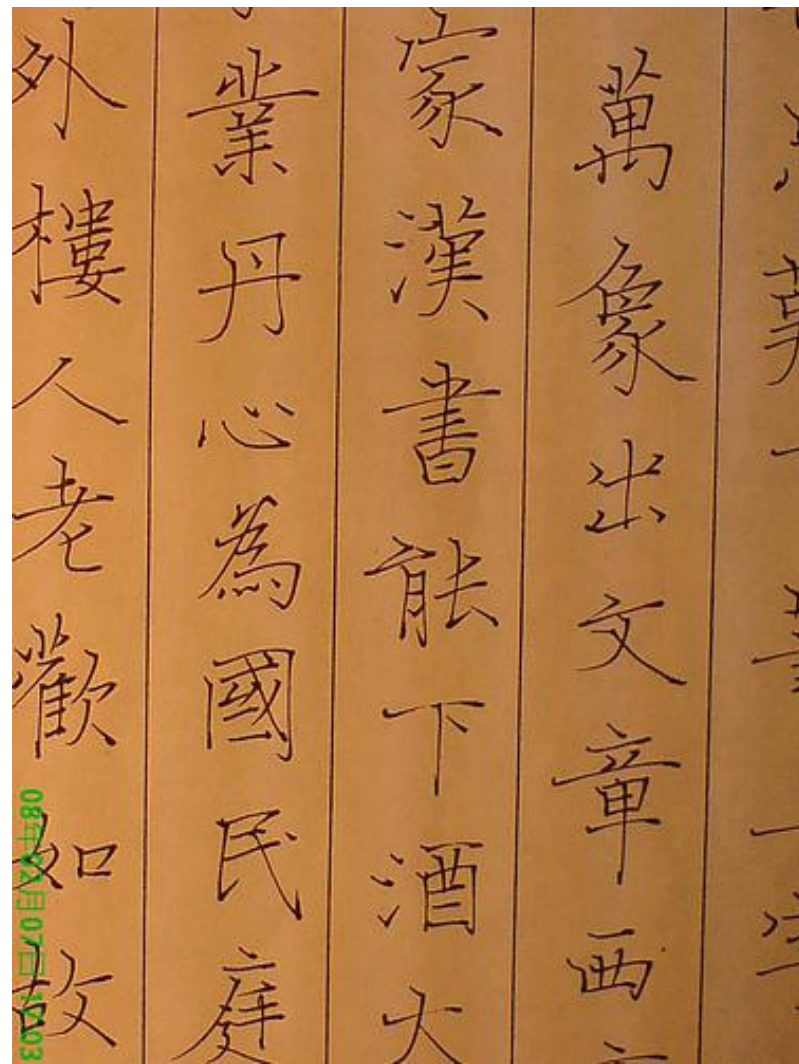 萬象出文章西
家漢書能下酒火
業丹心為國民庭
外樓人老歡如故
08年02月07日